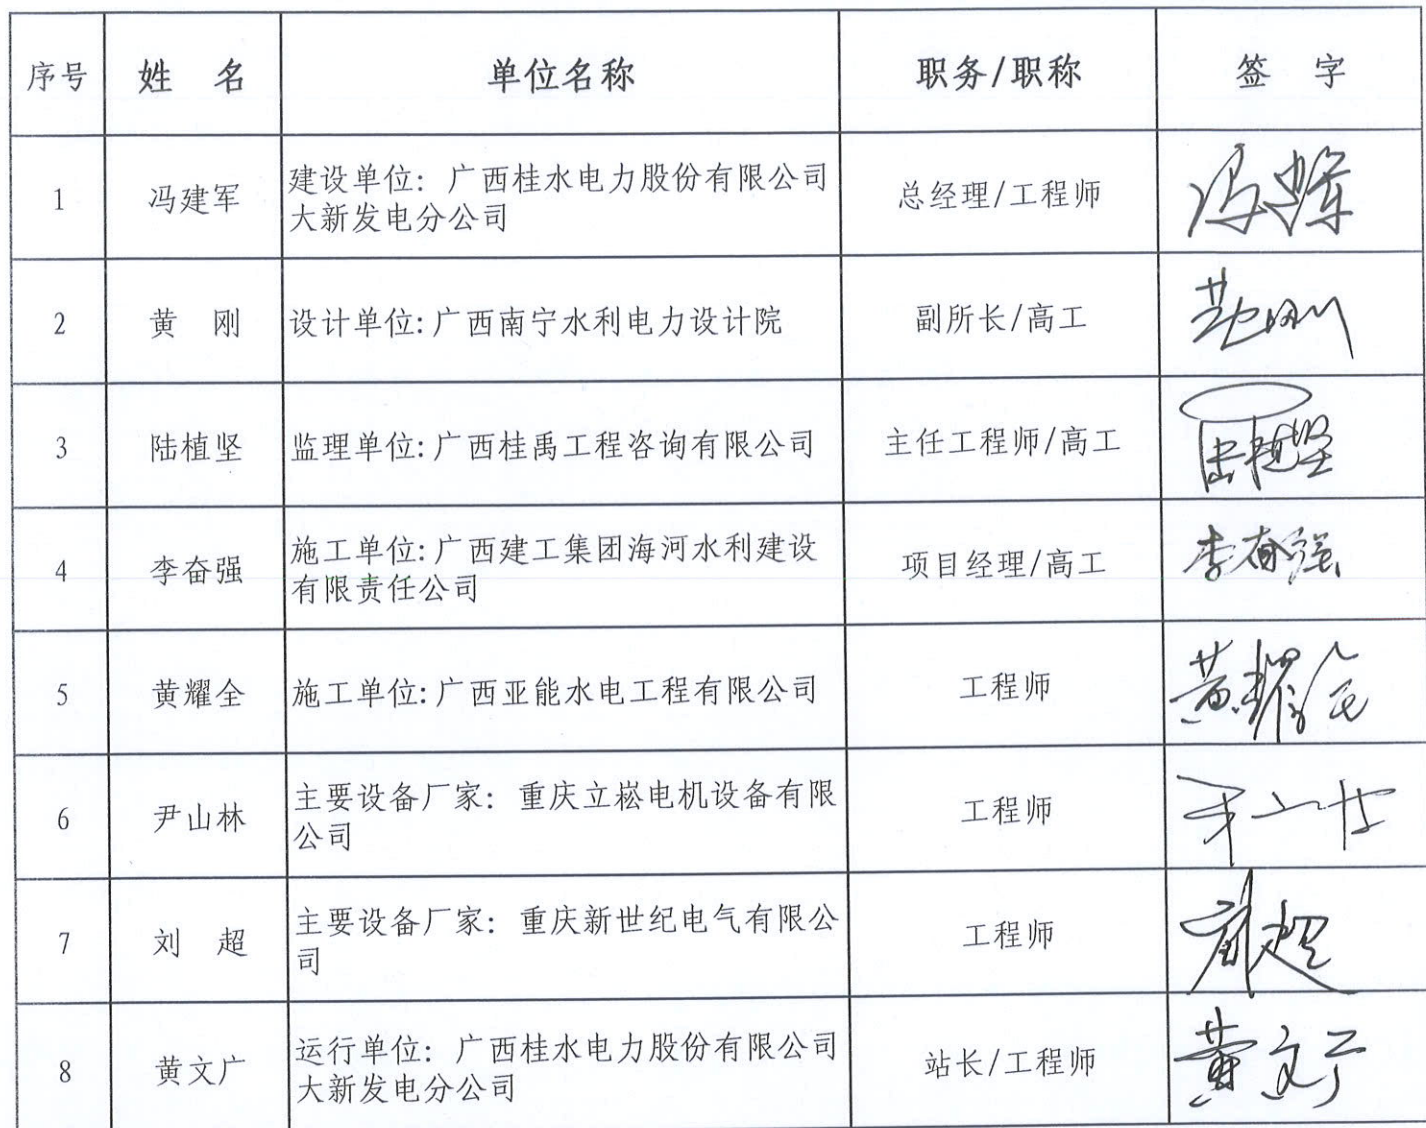 序号 姓 名 单位名称 职务/职称 签 字
1 冯建军 建设单位：广西桂水电力股份有限公司 总经理/工程师
大新发电分公司
2 黄 刚 设计单位:广西南宁水利电力设计院 副所长/高工 黄刚
3 陆植坚 监理单位:广西桂禹工程咨询有限公司 主任工程师/高工 陆植坚
4 李奋强 施工单位:广西建工集团海河水利建设 项目经理/高工 李奋强
有限责任公司
5 黄耀全 施工单位:广西亚能水电工程有限公司 工程师 黄耀全
6 尹山林 主要设备厂家：重庆立崧电机设备有限 工程师
公司
7 刘 超 主要设备厂家：重庆新世纪电气有限公 工程师 刘超
司
8 黄文广 运行单位：广西桂水电力股份有限公司 站长/工程师 黄文广
大新发电分公司